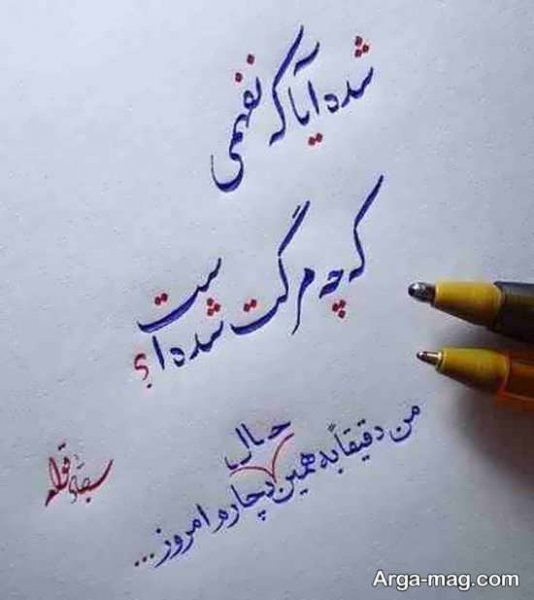 شده آیا که نفهمی
که چه مرگت شده است؟
من دقیقاً به همین حال دچارم امروز...
Arga-mag.com